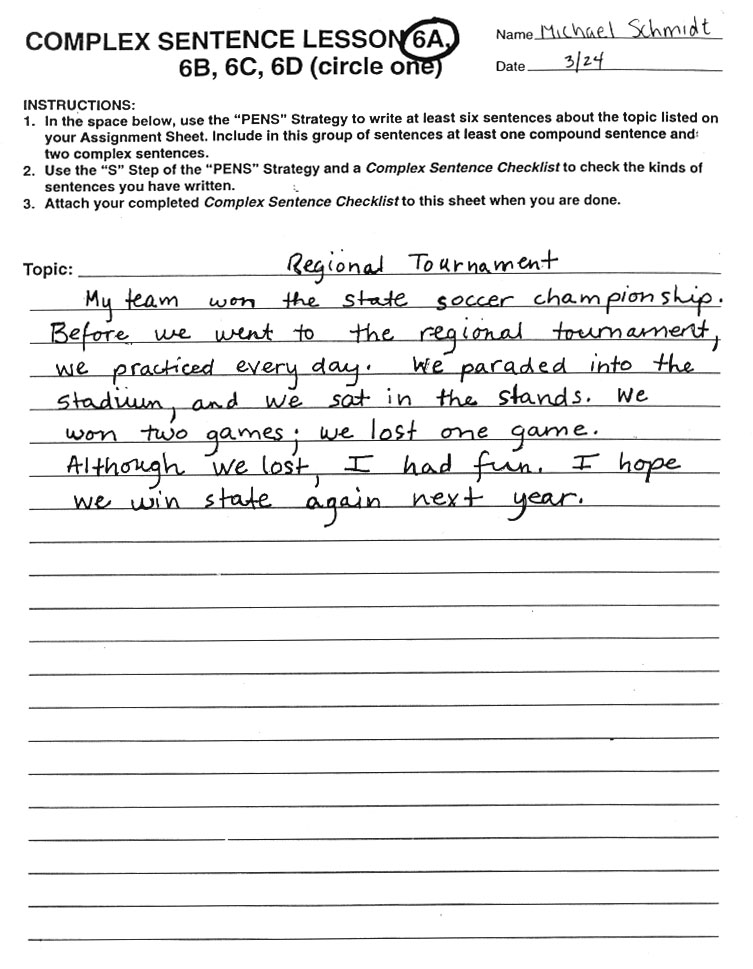 COMPLEX SENTENCE LESSON 6A,
6B, 6C, 6D (circle one)
Name Michael Schmidt
Date 3/24
INSTRUCTIONS:
1. In the space below, use the “PENS” Strategy to write at least six sentences about the topic listed on
your Assignment Sheet. Include in this group of sentences at least one compound sentence and
two complex sentences.
2. Use the “S” Step of the “PENS” Strategy and a Complex Sentence Checklist to check the kinds of
sentences you have written.
3. Attach your completed Complex Sentence Checklist to this sheet when you are done.
Topic: Regional Tournament
My team won the state soccer championship.
Before we went to the regional tournament,
we practiced every day. We paraded into the
stadium, and we sat in the stands. We
won two games; we lost one game.
Although we lost, I had fun. I hope
we win state again next year.